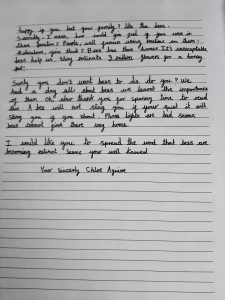 happy if you but your family? like the bees.
Sincerely I mean, how would you feel if you were in
there position? People, well human using pesticides on them.
disgusting, you think? Bees are like humans. It's unacceptable
bees help us. They pollinate 3 million flowers for a honey
pot.
Surely you don't want bees to die do you? We
had a day all about bees we learnt the importance
of them. Oh, also thank you for spending time to read
this. Bees will not sting you if your quiet it will
sting you if you shout. Phone lights are bad seems
bees cannot find there way home.
I would like you to spread the word that bees are
becoming extinct. Seems your well known
Your sincerly Chloe